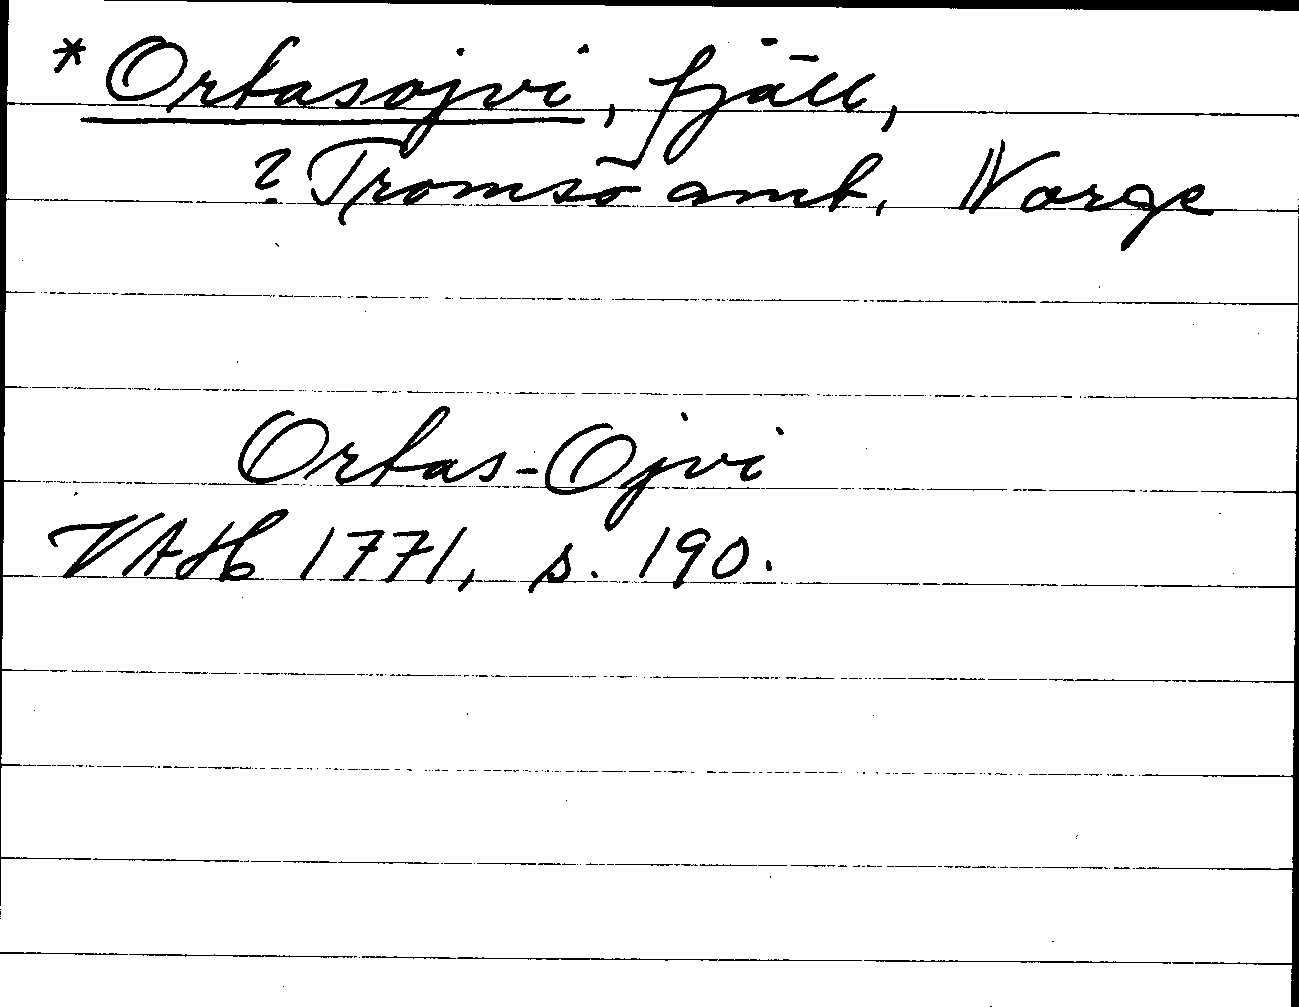 * Ortasojvi, fjäll,
? Tromsö amt, Norge
Ortas-Ojvi
VAH 1771, s. 190.